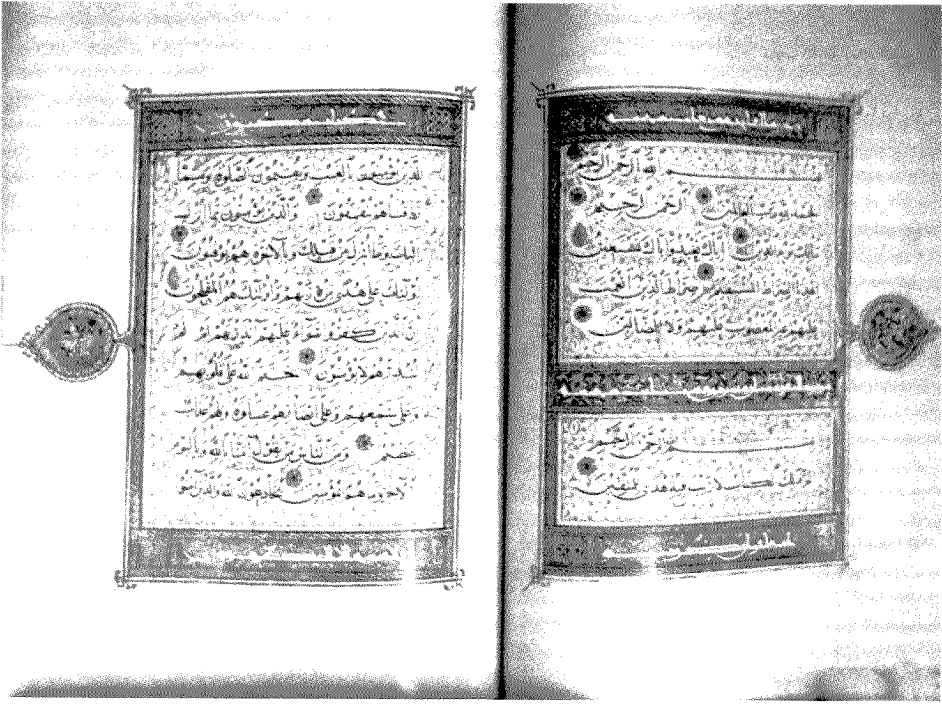 بسم الله الرحمن الرحيم
الحمد لله رب العلمين الرحمن الرحيم
ملك يوم الدين اياك نعبد واياك نستعين
اهدنا الصراط المستقيم صراط الذين انعمت
عليهم غير المغضوب عليهم ولا الضالين
بسم الله الرحمن الرحيم
الم ذلك الكتاب لا ريب فيه هدى للمتقين
الذين يؤمنون بالغيب ويقيمون الصلوة ومما
رزقناهم ينفقون والذين يؤمنون بما انزل
اليك وما انزل من قبلك وبالآخرة هم يوقنون
اولئك على هدى من ربهم واولئك هم المفلحون
ان الذين كفروا سواء عليهم ءانذرتهم ام لم
تنذرهم لا يؤمنون ختم الله على قلوبهم
وعلى سمعهم وعلى ابصارهم غشاوة ولهم عذاب
عظيم ومن الناس من يقول آمنا بالله وباليوم
الآخر وما هم بمؤمنين يخادعون الله والذين آمنوا